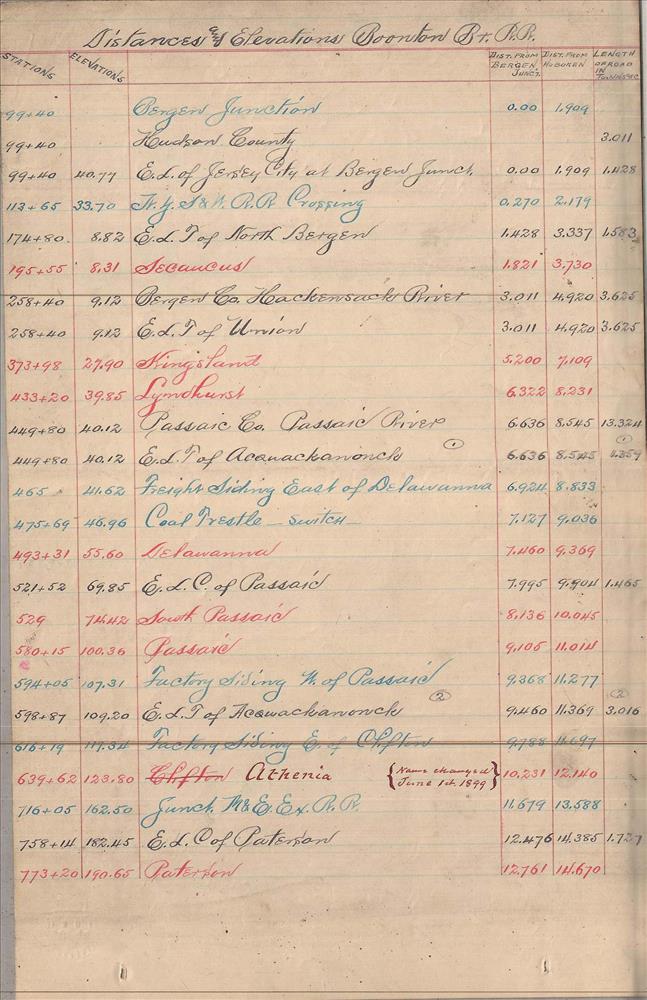 Distances and Elevations Boonton Br. R.R.
STATIONS ELEVATIONS DIST. FROM BERGEN JUNCT. DIST. FROM HOBOKEN LENGTH OF ROAD IN
99+40 Bergen Junction 0.00 1.909
99+40 Hudson County 3.011
99+40 40.77 E.L. of Jersey City at Bergen Junct. 0.00 1.909 1.428
113+65 33.70 N.Y. S & W. R.R. Crossing 0.270 2.179
174+80 8.82 E.L.T of North Bergen 1.428 3.337 1.583
195+55 8.31 Secaucus 1.821 3.730
258+40 9.12 Bergen Co. Hackensack River 3.011 4.920 3.625
258+40 9.12 E.L.T of Union 3.011 4.920 3.625
373+98 27.90 Kingsland 5.200 7.109
433+20 39.85 Lyndhurst 6.322 8.231
449+80 40.12 Passaic Co. Passaic River 6.636 8.545 13.324
449+80 40.12 E.L.T of Acquackanonck (1) 6.636 8.545 (1) 1.359
465 41.62 Freight Siding East of Delawanna 6.924 8.833
475+69 46.96 Coal Trestle - switch - 7.127 9.036
493+31 55.60 Delawanna 7.460 9.369
521+52 69.85 E.L.C. of Passaic 7.995 9.904 1.465
529 74.42 South Passaic 8.136 10.045
580+15 100.36 Passaic 9.105 11.014
594+05 107.31 Factory Siding W. of Passaic 9.368 11.277
598+87 109.20 E.L.T of Acquackanonck (2) 9.460 11.369 (2) 3.016
616+19 117.34 Factory Siding E. of Clifton 9.788 11.697
639+62 123.80 Clifton Athenia {Name changed June 1st 1899} 10.231 12.140
716+05 162.50 Junct. M & E. Ex. R.R. 11.679 13.588
758+14 182.45 E.L.C of Paterson 12.476 14.385 1.727
773+20 190.65 Paterson 12.761 14.670